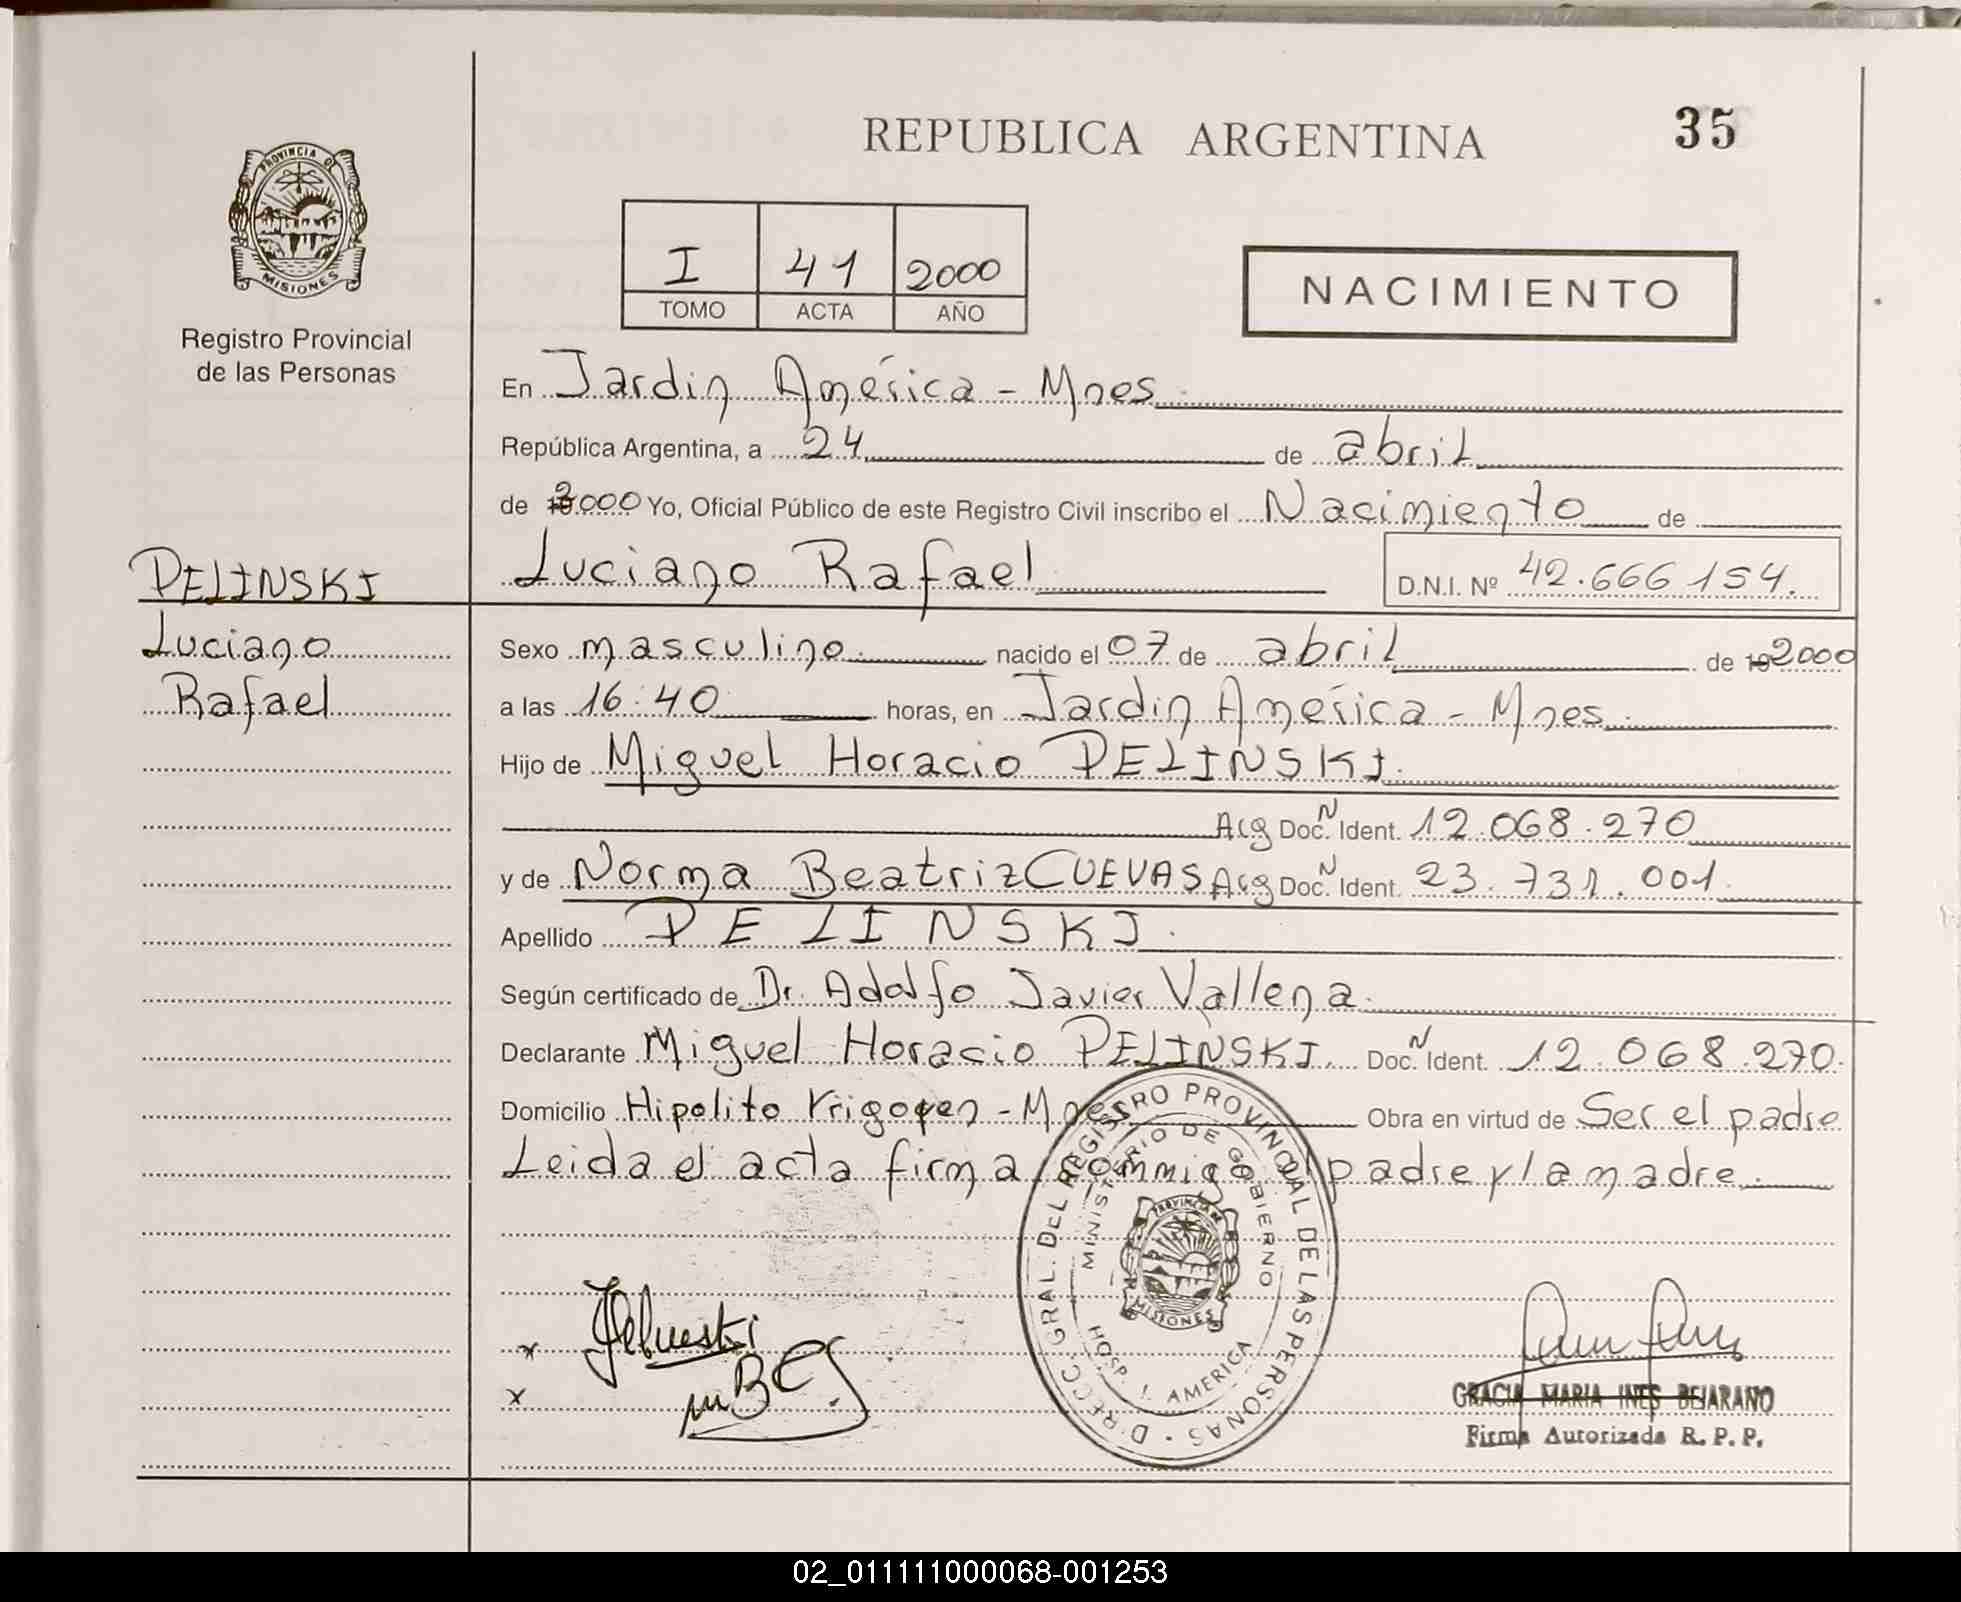 REPUBLICA ARGENTINA
35
PROVINCIA D
MISIONES
Registro Provincial
de las Personas
I 41 2000
TOMO ACTA AÑO
NACIMIENTO
En Jardin América - Mnes.
República Argentina, a 24 de abril
de 2000 Yo, Oficial Público de este Registro Civil inscribo el Nacimiento de
Luciano Rafael D.N.I. Nº 42.666 154.
PELINSKI
Luciano
Rafael
Sexo masculino. nacido el 07 de abril de 19 2000
a las 16:40 horas, en Jardin América - Mnes.
Hijo de Miguel Horacio PELINSKI.
Arg Doc. N Ident. 12.068.270
y de Norma Beatriz CUEVAS Arg Doc. N Ident. 23.731.001.
Apellido PELINSKI.
Según certificado de Dr. Adolfo Javier Vallena.
Declarante Miguel Horacio PELINSKI. Doc. N Ident. 12.068.270.
Domicilio Hipolito Yrigoyen - Mnes Obra en virtud de Ser el padre
Leida el acta firma commigo el padre y la madre.
DIRECC. GRAL. DEL REGISTRO PROVINCIAL DE LAS PERSONAS
MINISTERIO DE GOBIERNO
PROVINCIA DE
MISIONES
HOSP. J. AMERICA
x
x
GRACIA MARIA INES BEJARANO
Firma Autorizada R. P. P.
02_011111000068-001253